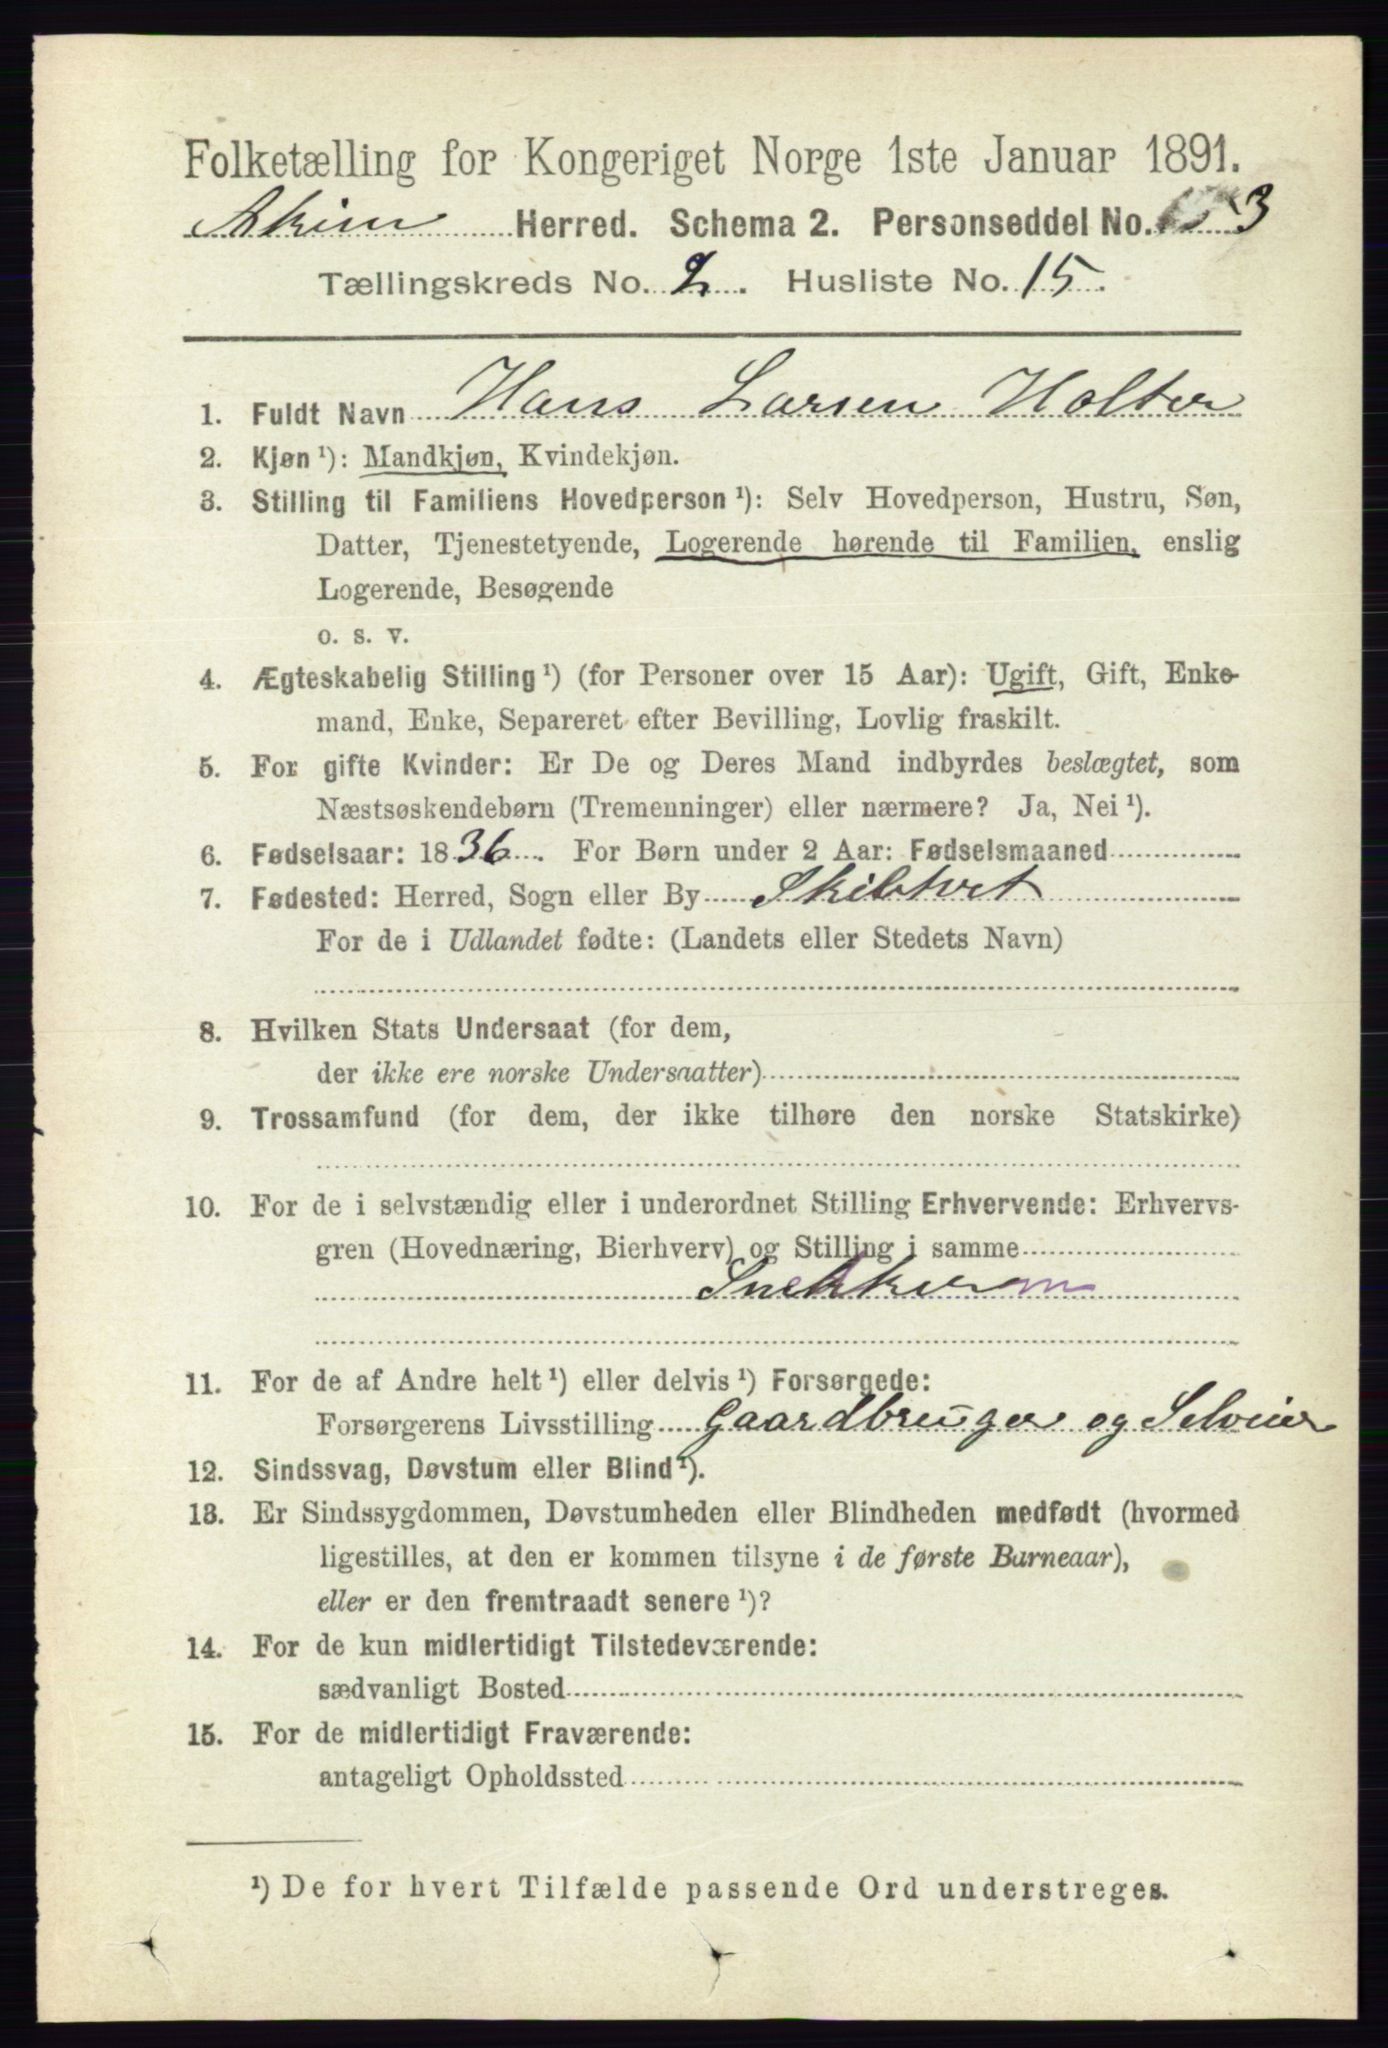 Folketælling for Kongeriget Norge 1ste Januar 1891.
Askim Herred. Schema 2. Personseddel No. 3
Tællingskreds No. 2. Husliste No. 15.
1. Fuldt Navn Hans Larsen Holter
2. Kjøn ¹): Mandkjøn, Kvindekjøn.
3. Stilling til Familiens Hovedperson ¹): Selv Hovedperson, Hustru, Søn,
Datter, Tjenestetyende, Logerende hørende til Familien, enslig
Logerende, Besøgende
o. s. v.
4. Ægteskabelig Stilling ¹) (for Personer over 15 Aar): Ugift, Gift, Enke-
mand, Enke, Separeret efter Bevilling, Lovlig fraskilt.
5. For gifte Kvinder: Er De og Deres Mand indbyrdes beslægtet, som
Næstsøskendebørn (Tremenninger) eller nærmere? Ja, Nei ¹).
6. Fødselsaar: 1836. For Børn under 2 Aar: Fødselsmaaned
7. Fødested: Herred, Sogn eller By Skibtvet
For de i Udlandet fødte: (Landets eller Stedets Navn)
8. Hvilken Stats Undersaat (for dem,
der ikke ere norske Undersaatter)
9. Trossamfund (for dem, der ikke tilhøre den norske Statskirke)
10. For de i selvstændig eller i underordnet Stilling Erhvervende: Erhvervs-
gren (Hovednæring, Bierhverv) og Stilling i samme
Snekker m
11. For de af Andre helt ¹) eller delvis ¹) Forsørgede:
Forsørgerens Livsstilling Gaardbruger og Selveier
12. Sindssvag, Døvstum eller Blind ¹).
13. Er Sindssygdommen, Døvstumheden eller Blindheden medfødt (hvormed
ligestilles, at den er kommen tilsyne i de første Barneaar),
eller er den fremtraadt senere ¹)?
14. For de kun midlertidigt Tilstedeværende:
sædvanligt Bosted
15. For de midlertidigt Fraværende:
antageligt Opholdssted
¹) De for hvert Tilfælde passende Ord understreges.